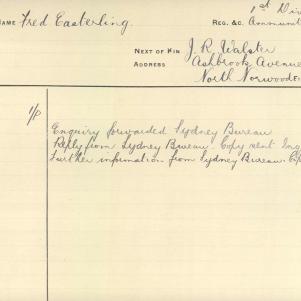 NAME Fred Easterling.
REG. &C. 1st Div
Ammunit
NEXT OF KIN J. R. Walster
ADDRESS Ashbrook Avenue
North Norwood
1/P
Enquiry forwarded Sydney Bureau
Reply from Sydney Bureau. Copy sent Inq
Further information from Sydney Bureau. Cop